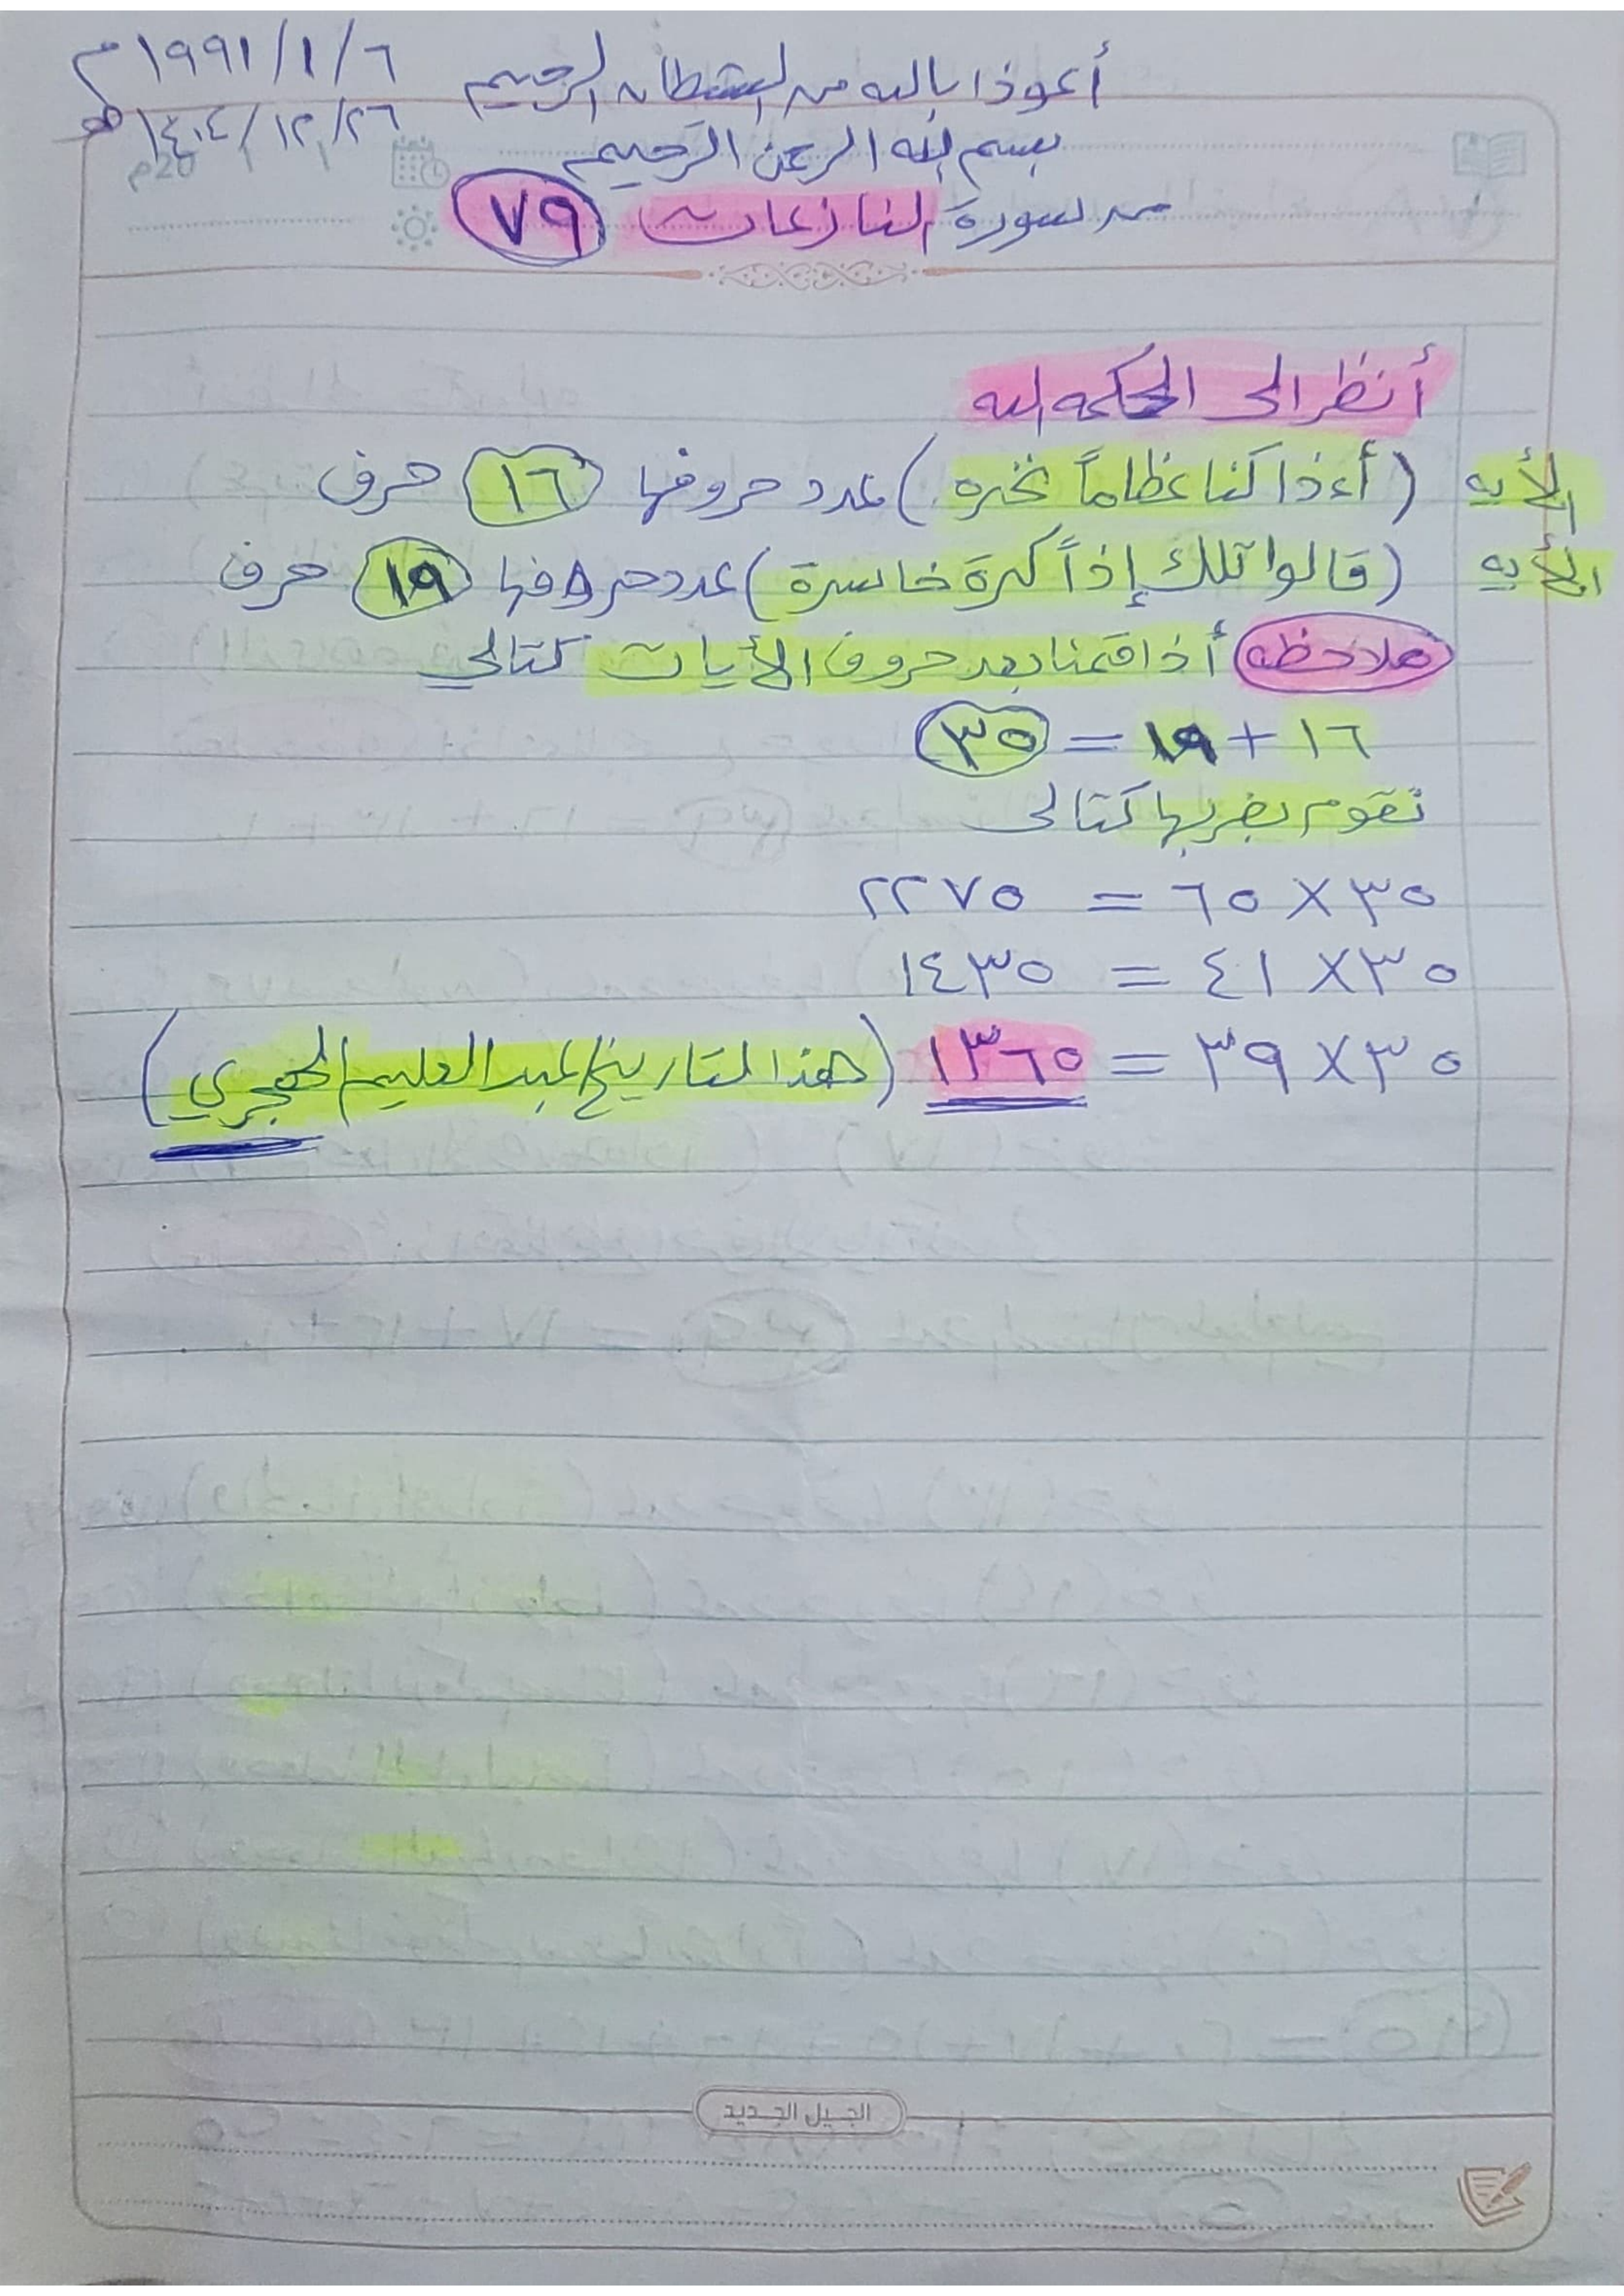 ١٩٩١/١/٦ م
١٤٠٤/١٢/٢٦ هـ
أعوذا بالله من الشيطان الرجيم
بسم الله الرحمن الرحيم
من سورة النازعات ٧٩
أنظر الى الحكمه الله
الأيه (أءذا كنا عظاماً نخره) عدد حروفها ١٦ حرف
الأيه (قالوا تلك إذاً كرة خاسرة) عدد حروفها ١٩ حرف
ملاحظه أذا قمنا بعد حروف الأيات كتالي
١٦ + ١٩ = ٣٥
نقوم بضربها كتالى
٣٥ × ٦٥ = ٢٢٧٥
٣٥ × ٤١ = ١٤٣٥
٣٥ × ٣٩ = ١٣٦٥ (هذا التاريخ لعبد العليم الهجري)
الجيل الجديد